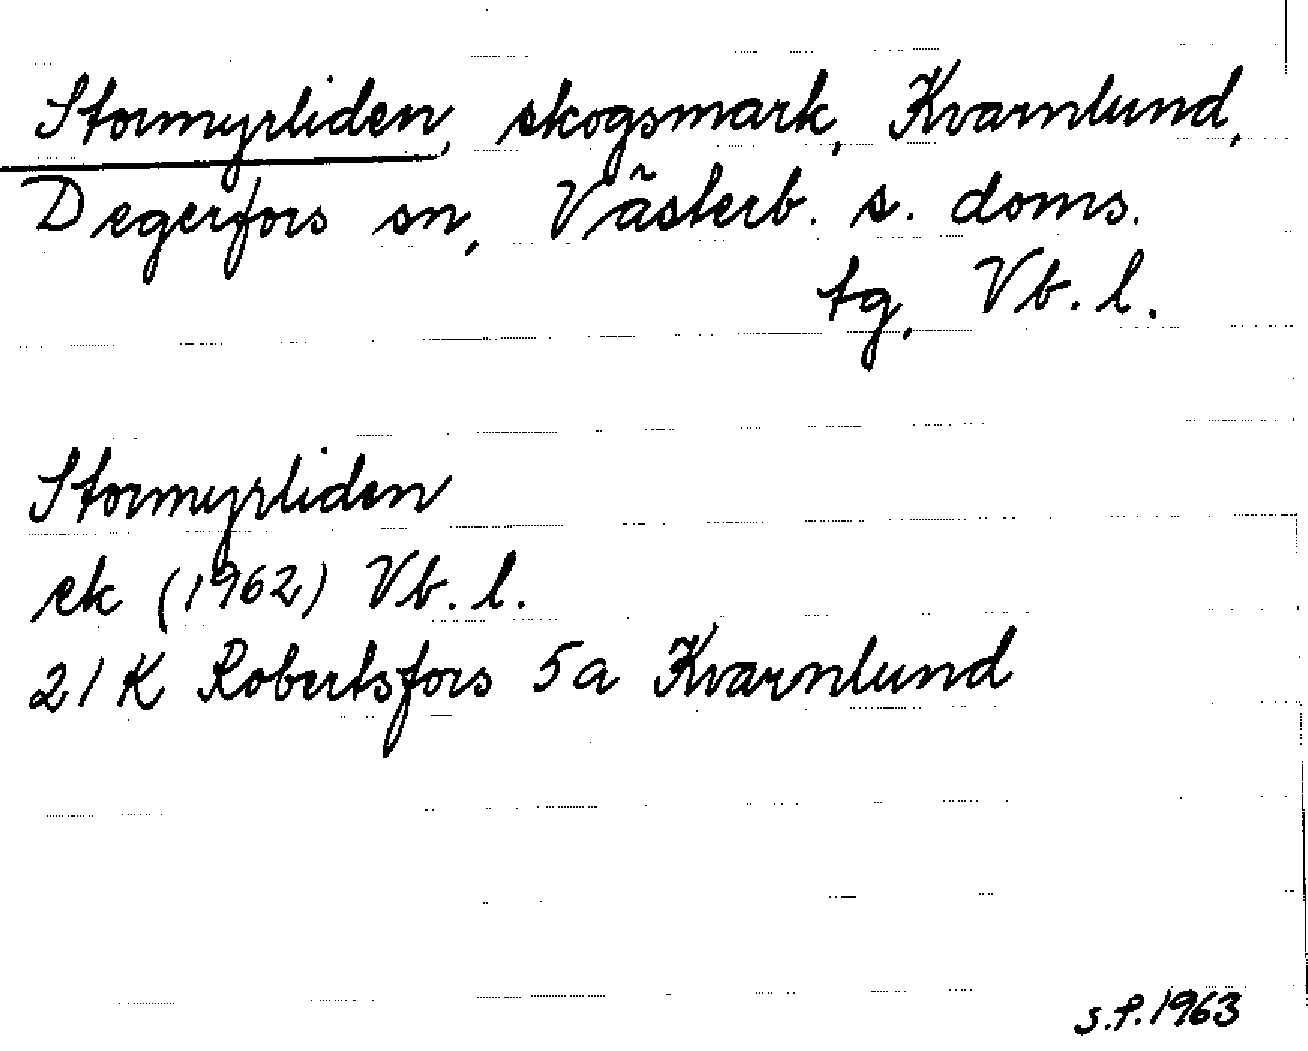 Stormyrliden, skogsmark, Kvarnlund,
Degerfors sn, Västerb. s. doms.
tg, Vb. l.
Stormyrliden
ek (1962) Vb. l.
21 K Robertsfors 5a Kvarnlund
S.P. 1963